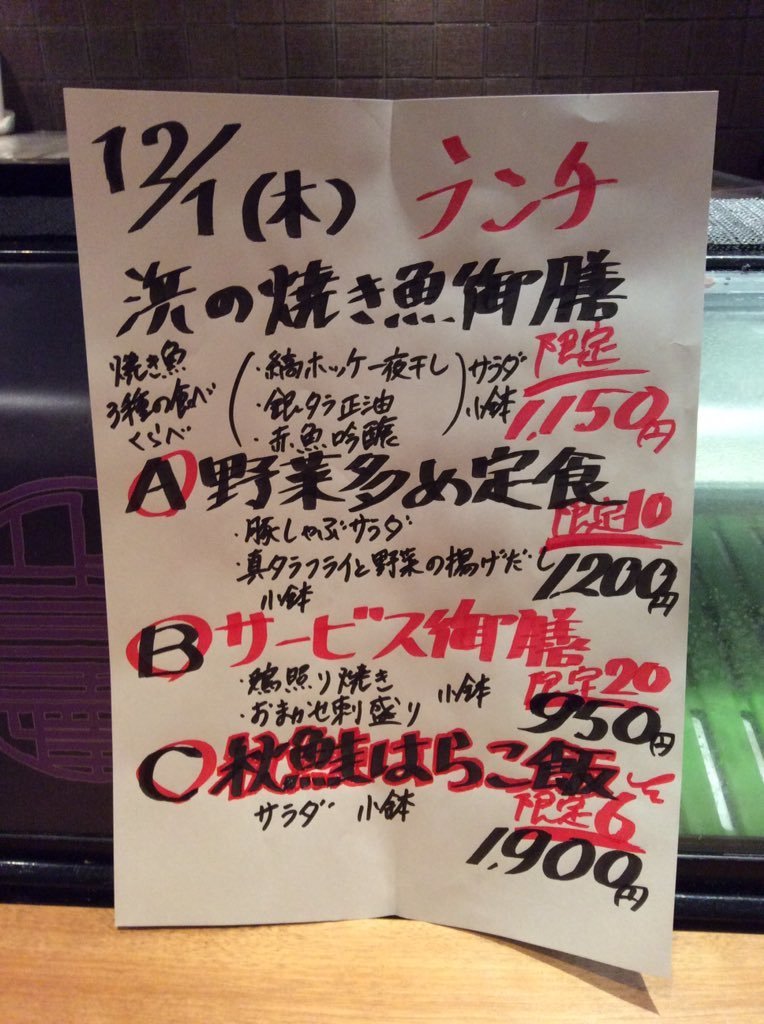 12/1(木) ランチ
浜の焼き魚御膳
限定
焼き魚
3種の食べ
くらべ
・縞ホッケ一夜干し
・銀タラ正油
・赤魚吟醸
サラダ
小鉢
1,150円
A 野菜多め定食
限定10
・豚しゃぶサラダ
・真タラフライと野菜の揚げだし
小鉢
1,200円
B サービス御膳
限定20
・鶏照り焼き
・おまかせ刺盛り
小鉢
950円
C 秋鮭はらこ飯
限定6
サラダ 小鉢
1,900円